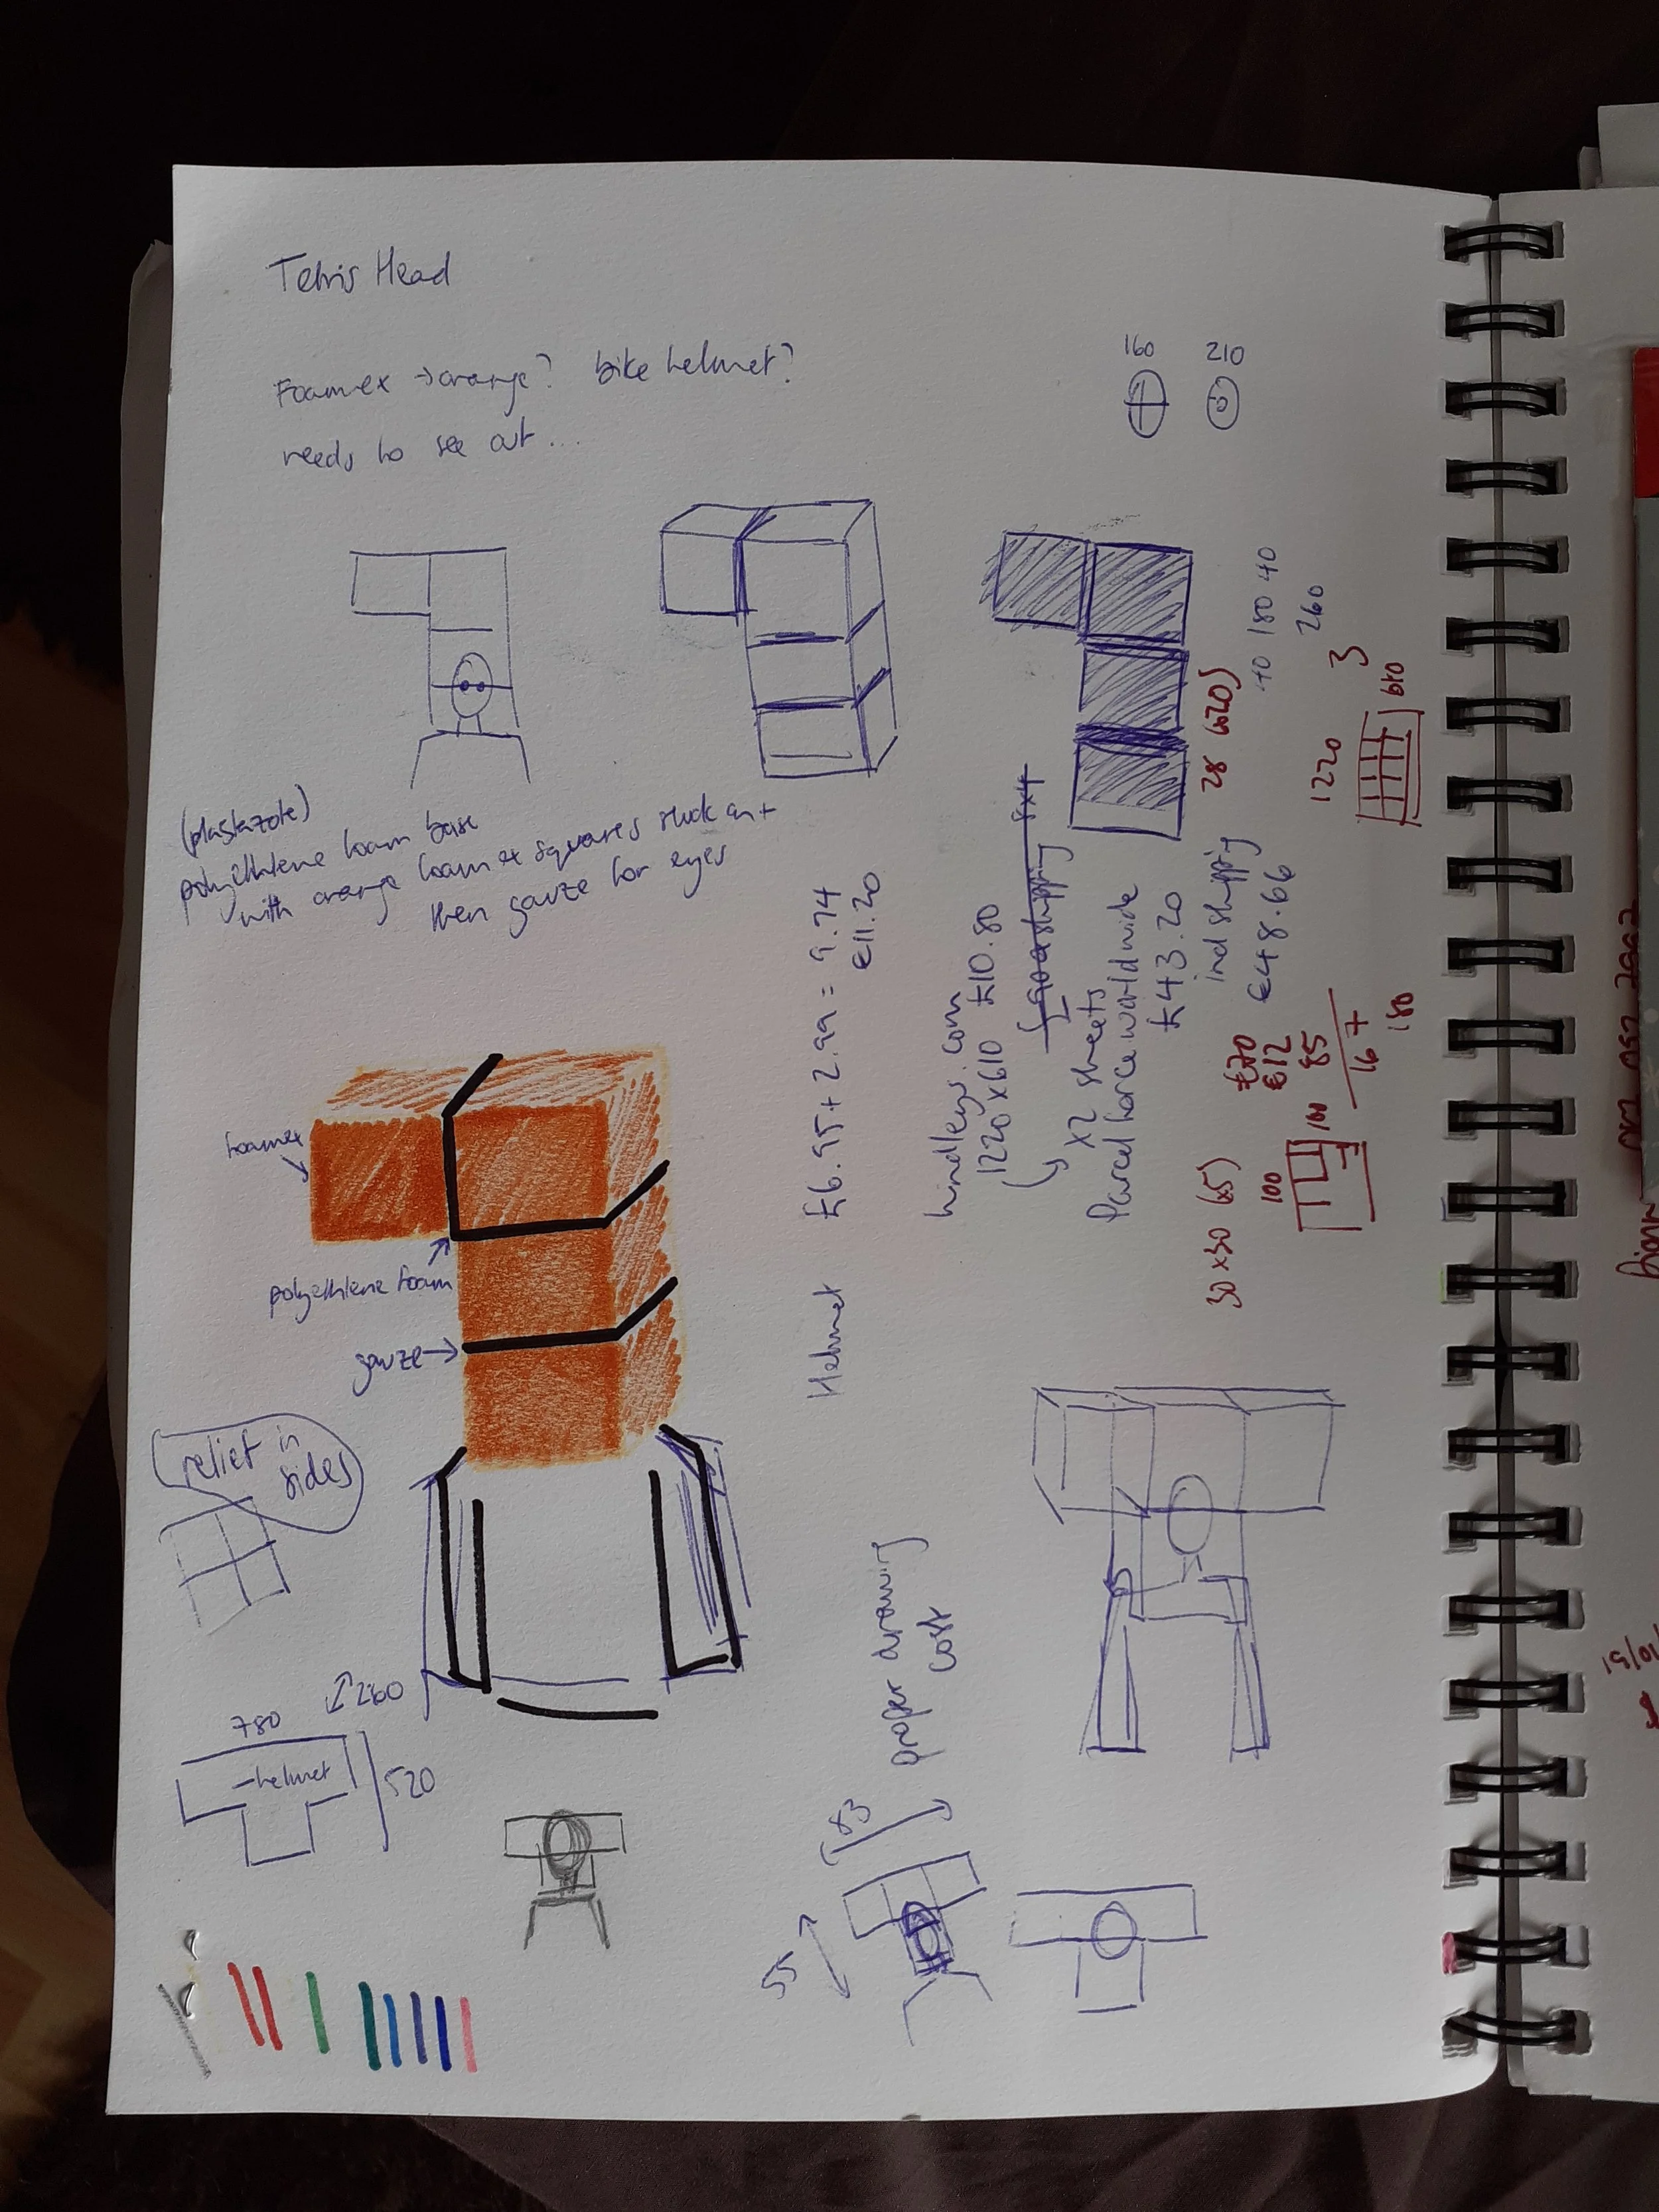 Tetris Head
Foamex → orange? bike helmet?
needs to see out...
160 210
(plastazote)
polyethlene foam base
with orange foamex squares stuck on +
then gauze for eyes
40 180 40
260
28 (620)
3
1220
610
foamex
polyethlene foam
gauze →
relief in
sides
Helmet £6.95 + 2.99 = 9.74
€11.20
hindleys.com
1220 x 610 £10.80
x 2 sheets
Parcel force worldwide
£43.20
incl shipping
€48.66
€70
€12
85
167
180
30 x 30 (65)
100
100
260
780
- helmet
520
proper drawing
cost
83
55